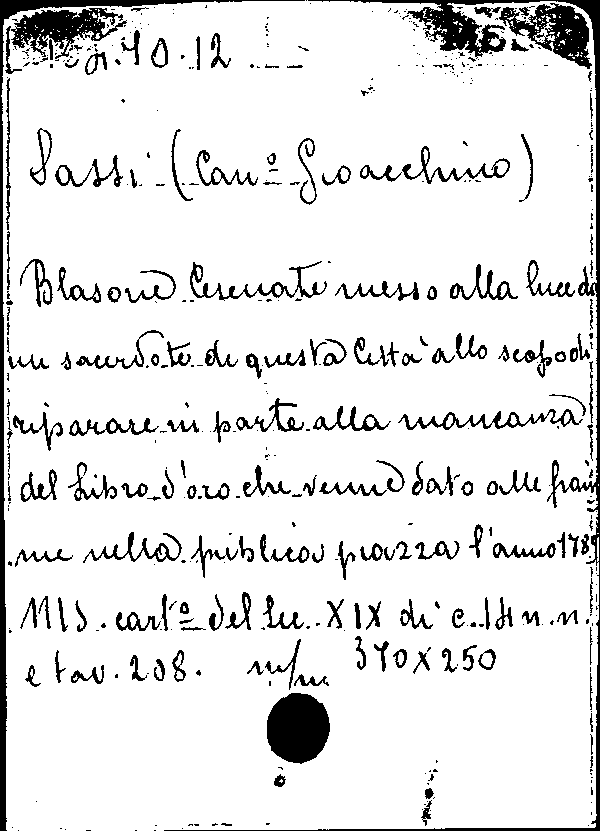 MSS
70.12
Sassi (Can.º Gioacchino)
Blasone Cesenate messo alla luce da
un sacerdote di questa Città allo scopo di
riparare in parte alla mancanza
del Libro d'oro che venne dato alle fiam
me nella publica piazza l'anno 1789
MS. cart.º del Sec. XIX di c. 14 n. n.
e tav. 208. m/m 370 x 250